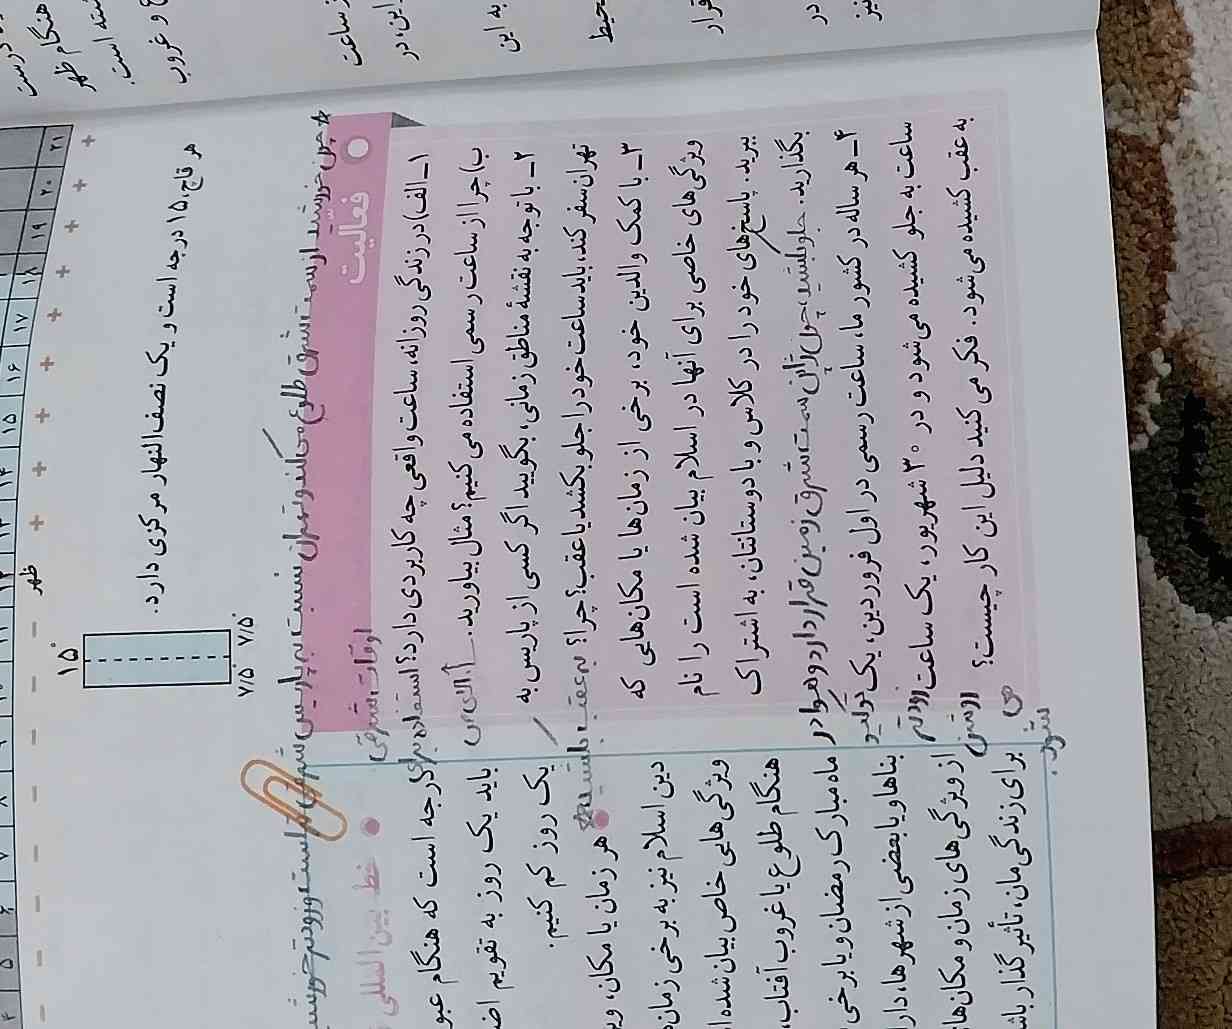 درست
هنگام ظهر
شته است.
و غروب
ز ساعت
این، در
به این
محیط
قرار
در
نیز
۲۱ ۲۰ ۱۹ ۱۸ ۱۷ ۱۶ ۱۵ ۱۴ ۱۳
۸ ۷ ۶ ۵ ۴
+ + + + + + + + + ظهر − − − − − − −
هر قاچ، ۱۵ درجه است و یک نصف‌النهار مرکزی دارد.
۱۵°
۷/۵° ۷/۵°
چون خورشید از سمت شرق طلوع می‌کند و تهران نسبت به پاریس شرقی تر است و زودتر خورشید
فعالیت
اوقات شرعی
۱ــ الف) در زندگی روزانه ساعت واقعی چه کاربردی دارد؟ استفاده برای
ب) چرا از ساعت رسمی استفاده می‌کنیم؟ مثال بیاورید.
۲ــ با توجه به نقشهٔ مناطق زمانی، بگویید اگر کسی از پاریس به
تهران سفر کند، باید ساعت خود را جلو بکشد یا عقب؟ چرا؟ به عقب بکشید
۳ــ با کمک والدین خود، برخی از زمان‌ها یا مکان‌هایی که
ویژگی‌های خاصی برای آنها در اسلام بیان شده است را نام
ببرید. پاسخ‌های خود را در کلاس و با دوستانتان، به اشتراک
بگذارید. جلو بکشید چون ژاپن سمت شرق زمین قرار دارد و هوا در
۴ــ هر ساله در کشور ما، ساعت رسمی در اول فروردین، یک
ساعت به جلو کشیده می‌شود و در ۳۰ شهریور، یک ساعت زودتر
به عقب کشیده می‌شود. فکر می‌کنید دلیل این کار چیست؟ روشن
می
شود.
خط بین‌المللی
درجه است که هنگام عبو
باید یک روز به تقویم اض
یک روز کم کنیم.
هر زمان یا مکان، وی
دین اسلام نیز به برخی زمان
ویژگی‌هایی خاص بیان شده ا
هنگام طلوع یا غروب آفتاب،
ماه مبارک رمضان و یا برخی
بناها و یا بعضی از شهرها، دارا
از ویژگی‌های زمان و مکان‌ها
برای زندگی‌مان، تأثیرگذار باش